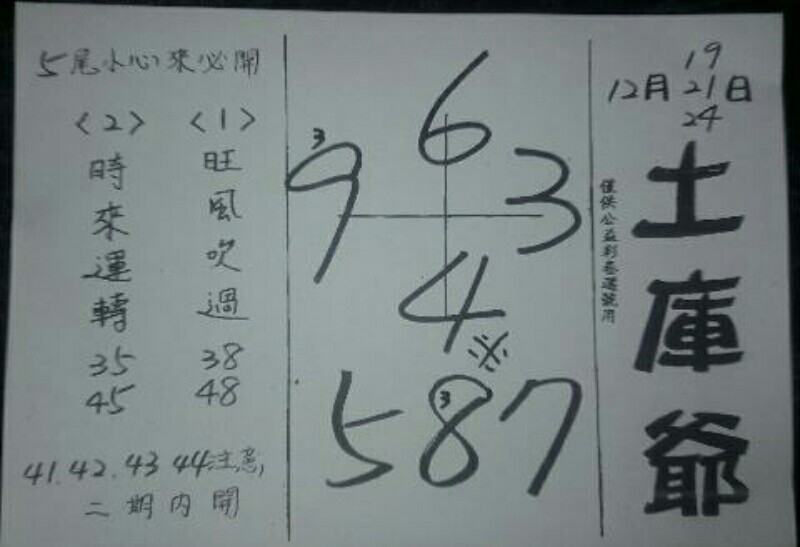 19
12月21日
24
土庫爺
僅供公益彩卷選號用
6
3
9
3
4
必
5 8 7
3
5尾小心來必開
<1>
旺風吹過
38
48
<2>
時來運轉
35
45
41.42.43 44注意,
二期內開